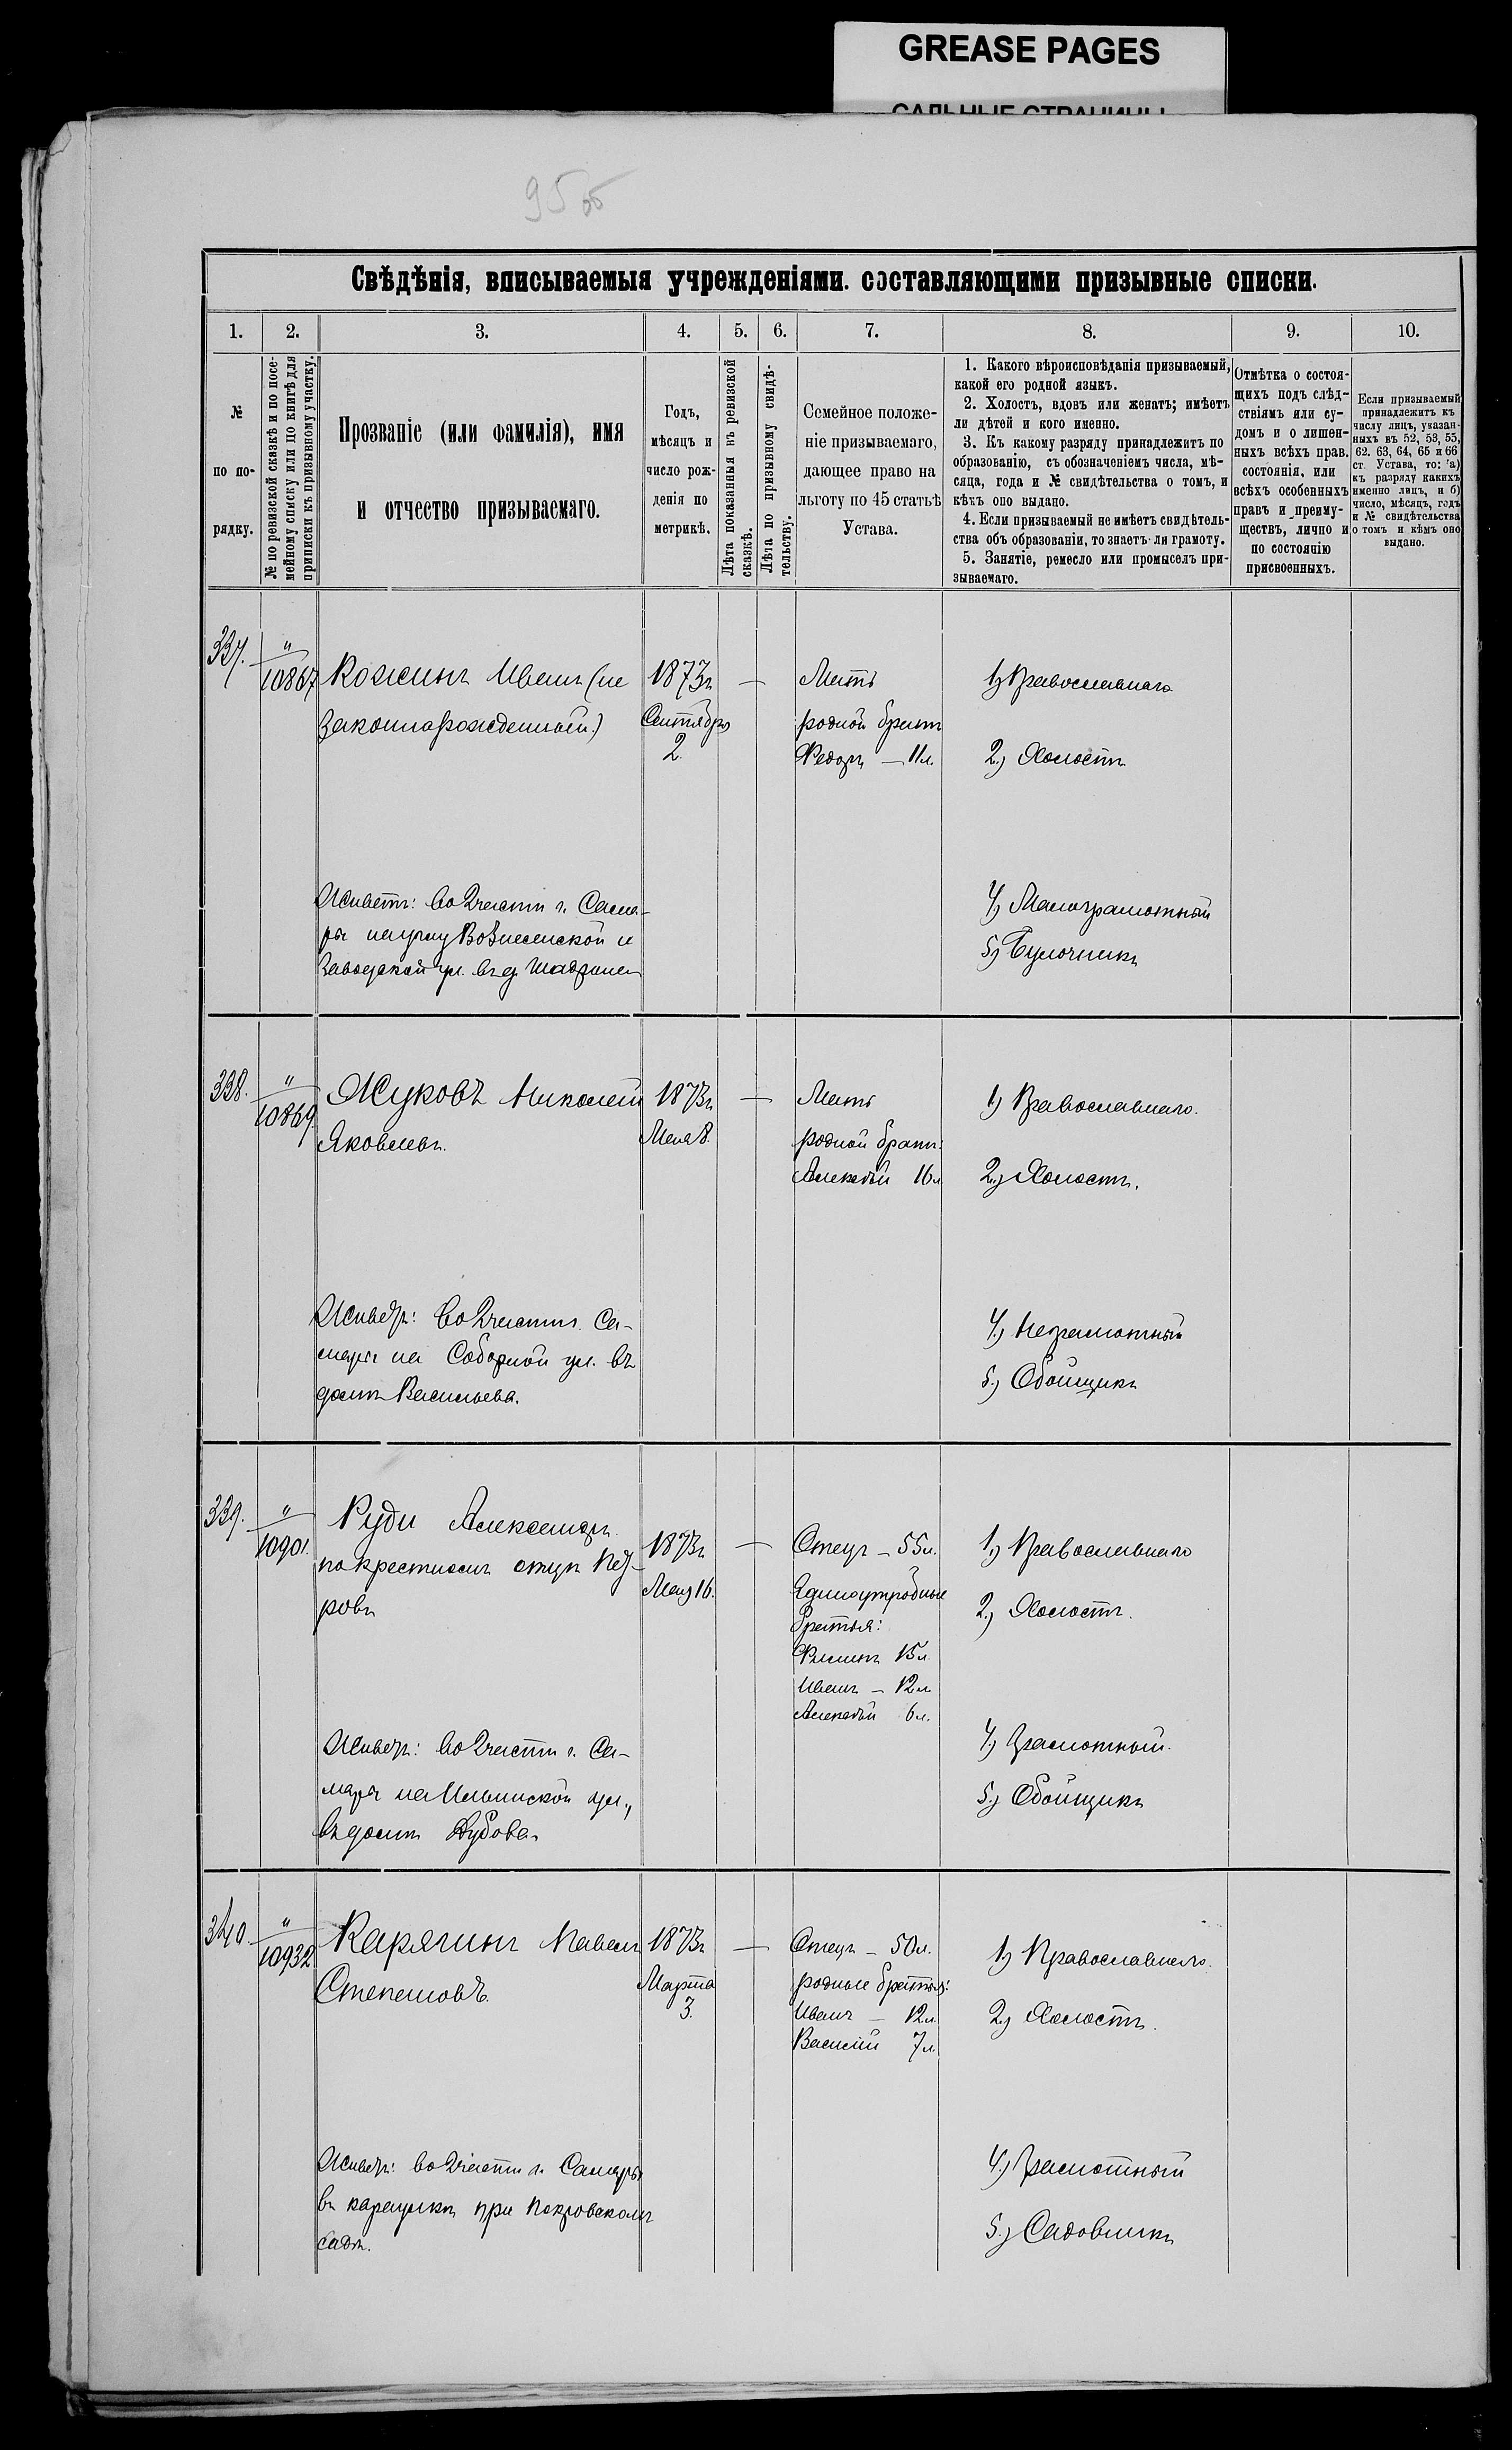 GREASE PAGES
САЛЬНЫЕ СТРАНИЦЫ
95 об
Свѣдѣнія, вписываемыя учрежденіями. составляющими призывные списки.
1.
2.
3.
4.
5.
6.
7.
8.
9.
10.
№
по по-
рядку.
№ по ревизской сказкѣ и по посе-
мейному списку или по книгѣ для
приписки къ призывному участку.
Прозваніе (или фамилія), имя
и отчество призываемаго.
Годъ,
мѣсяцъ и
число рож-
денія по
метрикѣ.
Лѣта показанныя въ ревизской
сказкѣ.
Лѣта по призывному свидѣ-
тельству.
Семейное положе-
ніе призываемаго,
дающее право на
льготу по 45 статьѣ
Устава.
1. Какого вѣроисповѣданія призываемый,
какой его родной языкъ.
2. Холостъ, вдовъ или женатъ; имѣетъ
ли дѣтей и кого именно.
3. Къ какому разряду принадлежитъ по
образованію, съ обозначеніемъ числа, мѣ-
сяца, года и № свидѣтельства о томъ, и
кѣмъ оно выдано.
4. Если призываемый не имѣетъ свидѣтель-
ства объ образованіи, то знаетъ-ли грамоту.
5. Занятіе, ремесло или промыселъ при-
зываемаго.
Отмѣтка о состоя-
щихъ подъ слѣд-
ствіямъ или су-
домъ и о лишен-
ныхъ всѣхъ прав.
состоянія, или
всѣхъ особенныхъ
правъ и преиму-
ществъ, лично и
по состоянію
присвоенныхъ.
Если призываемый
принадлежитъ къ
числу лицъ, указан-
ныхъ въ 52, 53, 55,
62. 63, 64, 65 и 66
ст. Устава, то: а)
къ разряду какихъ
именно лицъ, и б)
число, мѣсяцъ, годъ
и № свидѣтельства
о томъ и кѣмъ оно
выдано.
337.
"
10867
Кожинъ Иванъ (не
законнорожденный.)
1873г
Сентября
2.
—
Мать
родной братъ
Федоръ — 11 л.
1) Православнаго
2.) Холостъ
Живетъ: во 2 части г. Сама-
ры на углу Вознесенской и
Заводской ул. въ д. Шадрина
4) Малограмотный
5) Булочникъ
338.
"
10869.
Жуковъ Николай
Яковлевъ.
1873г
Мая 8.
—
Мать
родной братъ:
Алексѣй 16 л
1) Православнаго.
2.) Холостъ.
Живетъ: во 2 части г. Са-
мары на Соборной ул. въ
домѣ Васильева.
4.) Неграмотный
5.) Обойщикъ
339.
"
10901.
Руди Александръ
по крестному отцу Пет-
ровъ
1873г
Мая 16.
—
Отецъ — 55 л.
Единоутробные
братья:
Филипъ 15 л
Иванъ — 12 л
Алексѣй 6 л.
1.) Православнаго
2.) Холостъ.
Живетъ: во 2 части г. Са-
мары на Ильинской ул.,
въ домѣ Зубова.
4.) Грамотный.
5.) Обойщикъ
340.
"
10932
Карягинъ Павелъ
Степановъ.
1873г
Марта
3.
—
Отецъ — 50 л.
родные братья:
Иванъ — 12 л.
Василій 7 л.
1) Православнаго.
2.) Холостъ.
Живетъ: во 2 части г. Самары
въ караулкѣ при Покровскомъ
садѣ.
4.) Грамотный
5.) Садовникъ